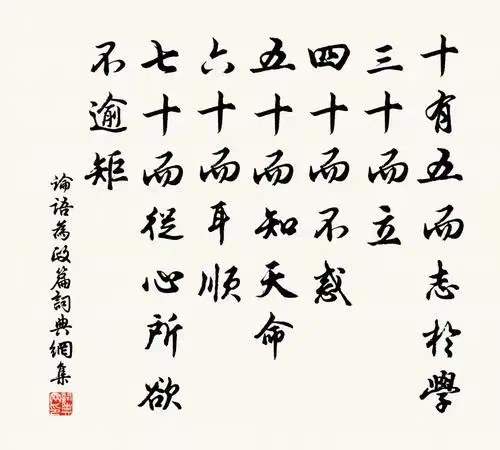 十有五而志於學
三十而立
四十而不惑
五十而知天命
六十而耳順
七十而從心所欲
不逾矩
论语為政篇詞典網集